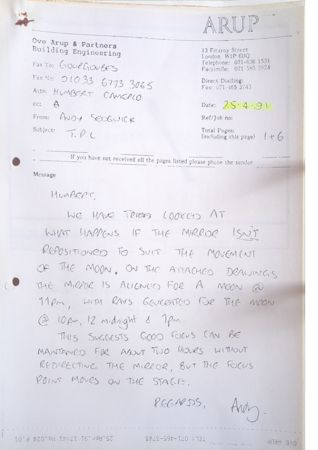 ARUP
Ove Arup & Partners
Building Engineering
13 Fitzroy Street
London W1P 6BQ
Telephone: 071-636 1531
Facsimile: 071-580 3924
Fax To: GOURGOUBES
Fax No: 01033 6773 3065
Direct Dialling:
Fax: 071-465 3743
Attn: HUMBERT CAMERLO
cc: A
Date: 25.4.91
From: ANDY SEDGWICK
Ref/Job no:
Subject: T.P.L
Total Pages:
(including this page) 1+6
If you have not received all the pages listed please phone the sender
Message
HUMBERT,
WE HAVE TRIED LOOKED AT
WHAT HAPPENS IF THE MIRROR ISN'T
REPOSITIONED TO SUIT THE MOVEMENT
OF THE MOON. ON THE ATTACHED DRAWINGS
THE MIRROR IS ALIGNED FOR A MOON @
11pm, WITH RAYS GENERATED FOR THE MOON
@ 10pm, 12 midnight & 1pm.
THIS SUGGESTS GOOD FOCUS CAN BE
MAINTAINED FOR ABOUT TWO HOURS WITHOUT
REDIRECTING THE MIRROR, BUT THE FOCUS
POINT MOVES ON THE STAGE.
REGARDS, Andy.